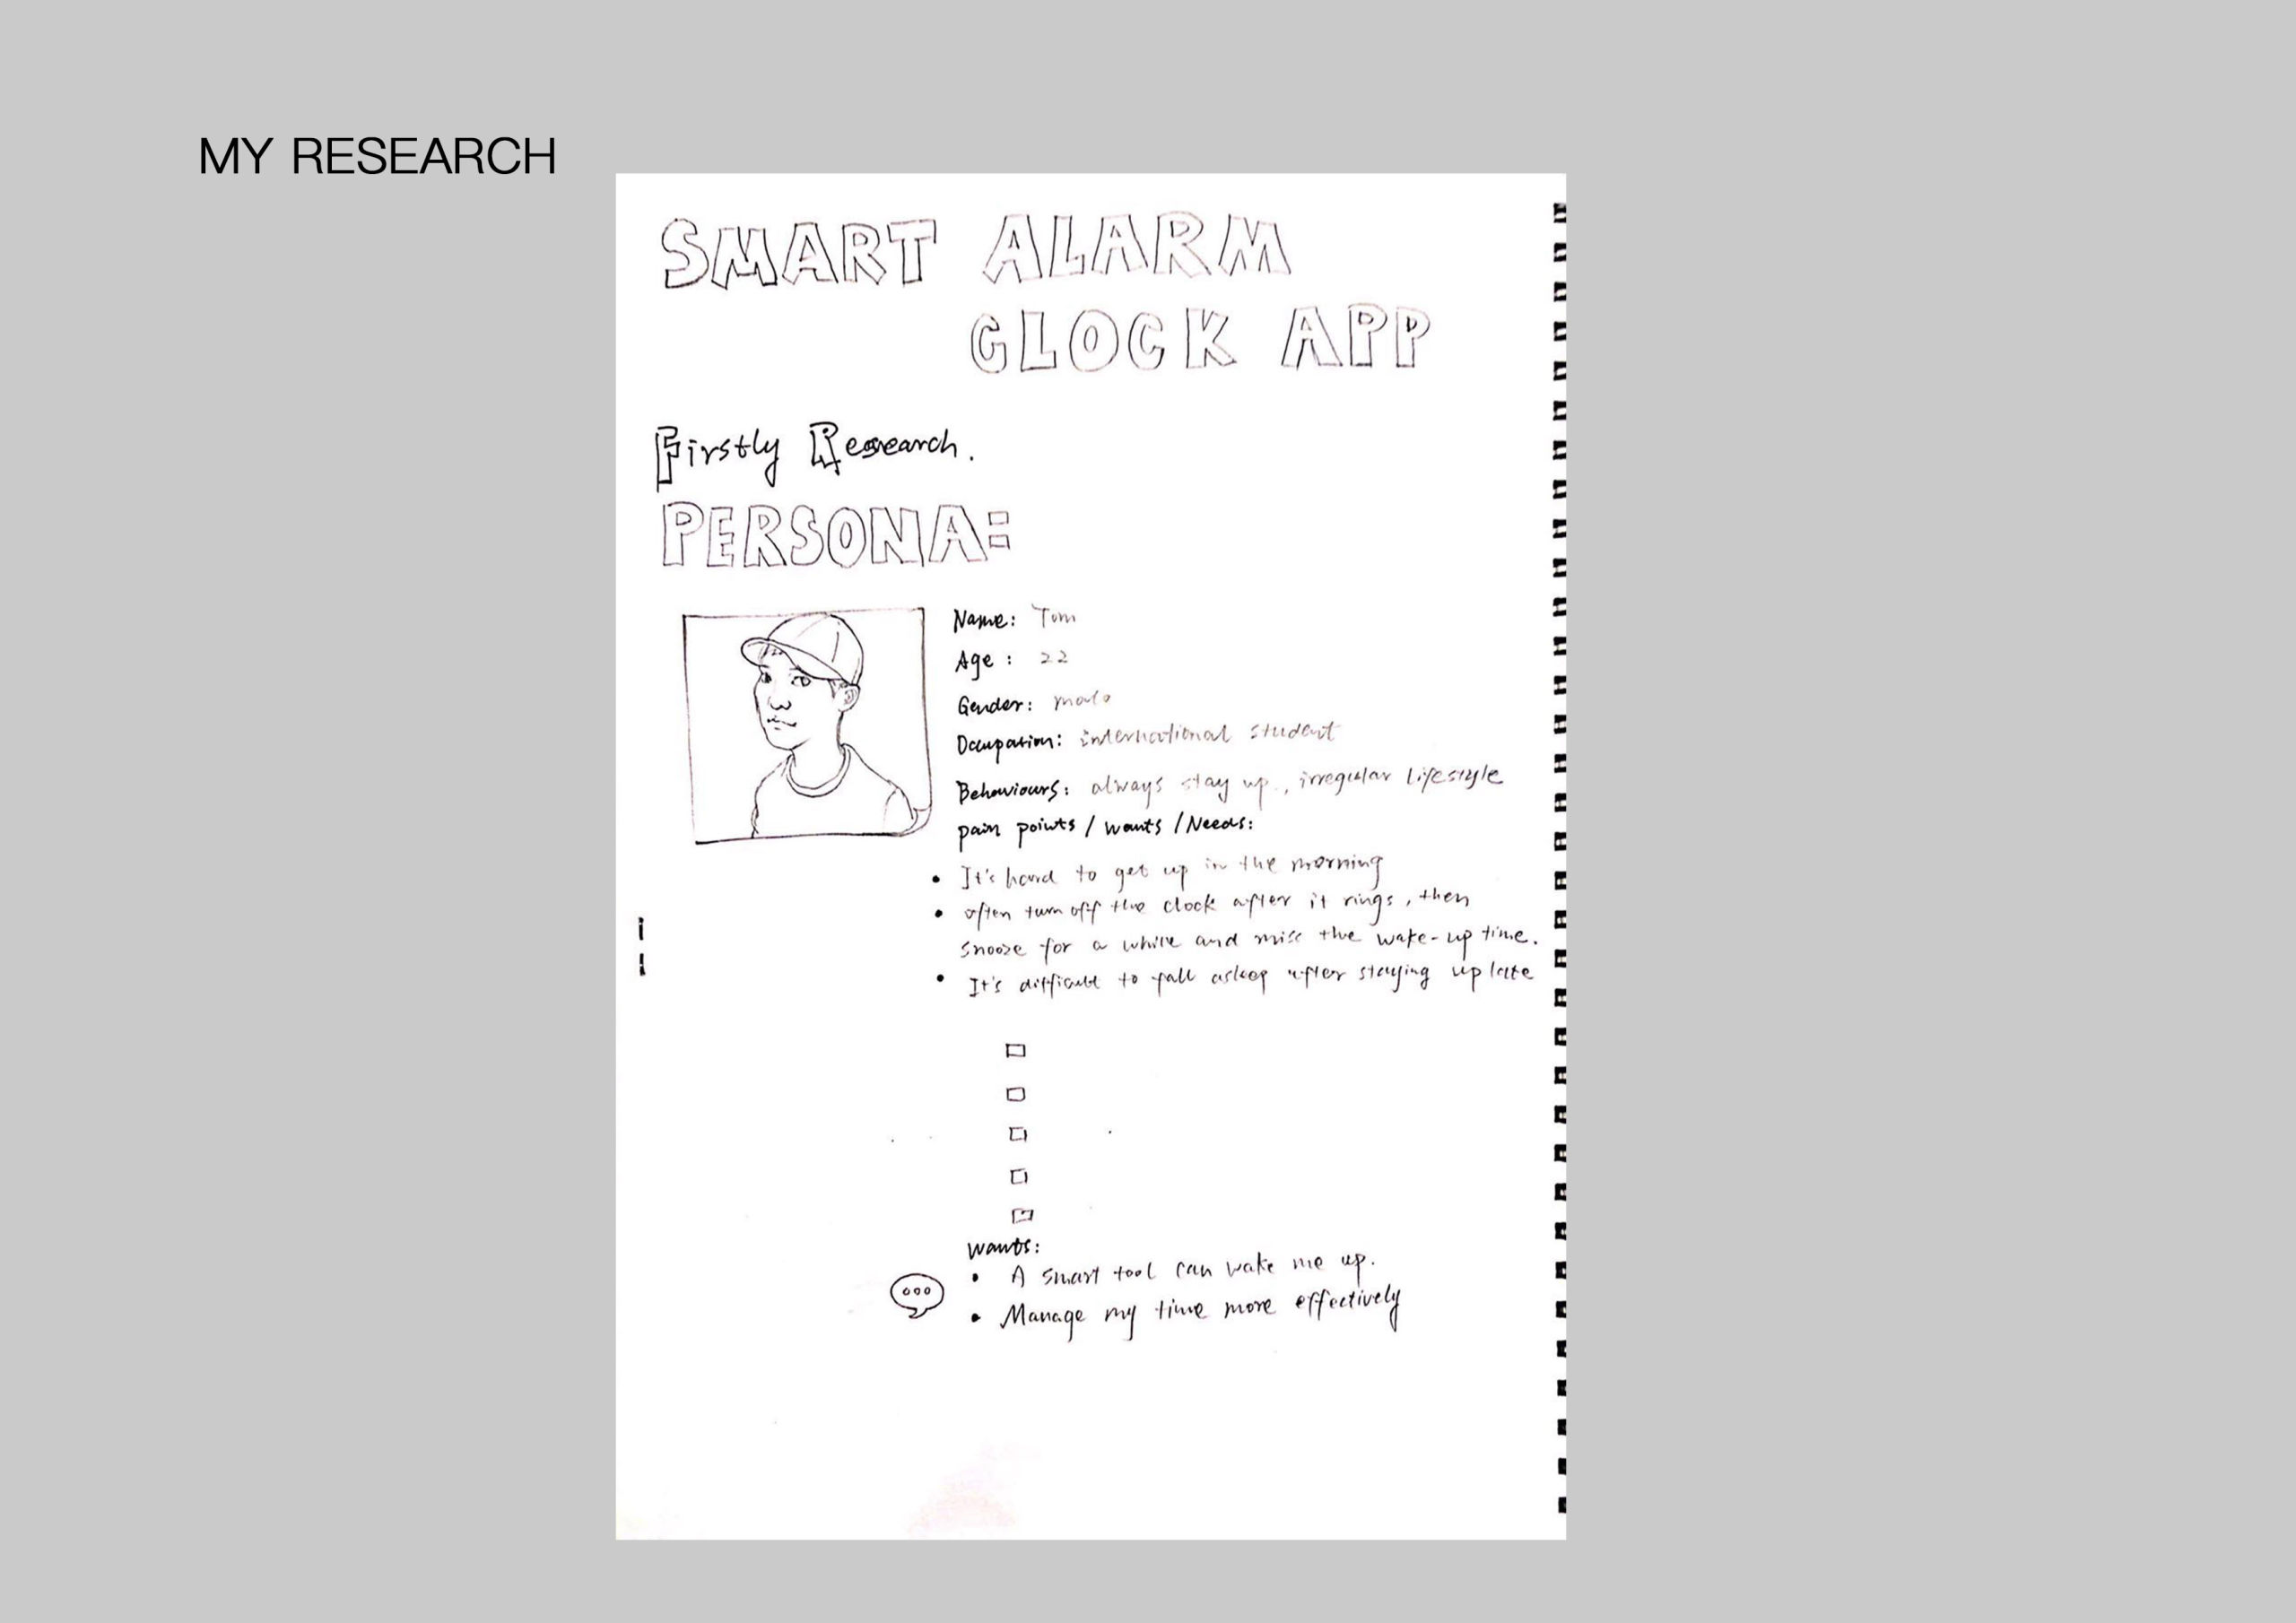 MY RESEARCH
SMART ALARM
CLOCK APP
Firstly Research.
PERSONA:
Name: Tom
Age : 22
Gender: male
Occupation: international student
Behaviours: always stay up, irregular lifestyle
pain points / wants / Needs:
• It's hard to get up in the morning
• often turn off the clock after it rings, then
snooze for a while and miss the wake-up time.
• It's difficult to fall asleep after staying up late
wants:
• A smart tool can wake me up.
• Manage my time more effectively